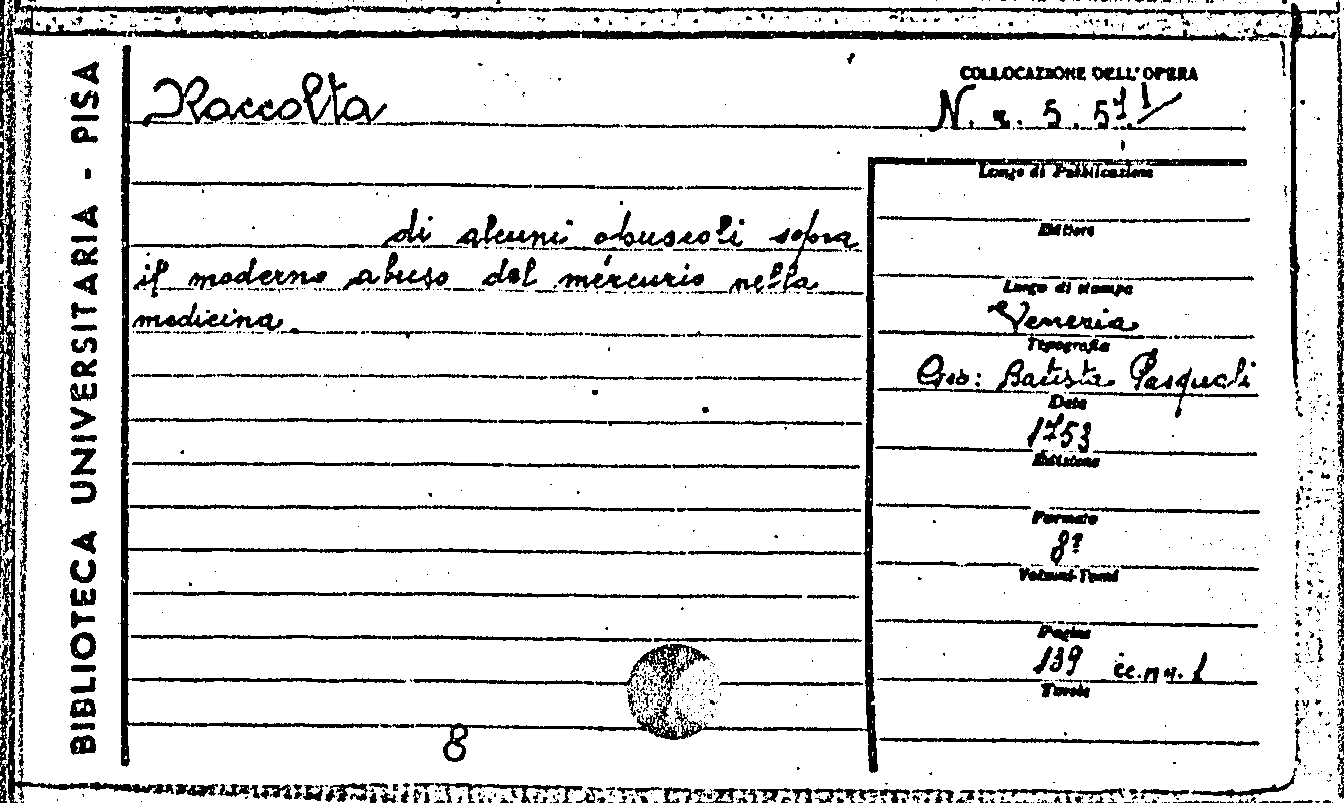 BIBLIOTECA UNIVERSITARIA - PISA
Raccolta
di alcuni obuscoli sopra
il moderno abuso del mercurio nella
medicina.
8
COLLOCAZIONE DELL'OPERA
N. z. 5. 57 1/
Luogo di Pubblicazione
Editore
Luogo di stampa
Venezia
Tipografia
Gio: Batista Pasquali
Data
1753
Edizione
Formato
8º
Volumi-Tomi
Pagine
139 cc.nn. 1
Tavole